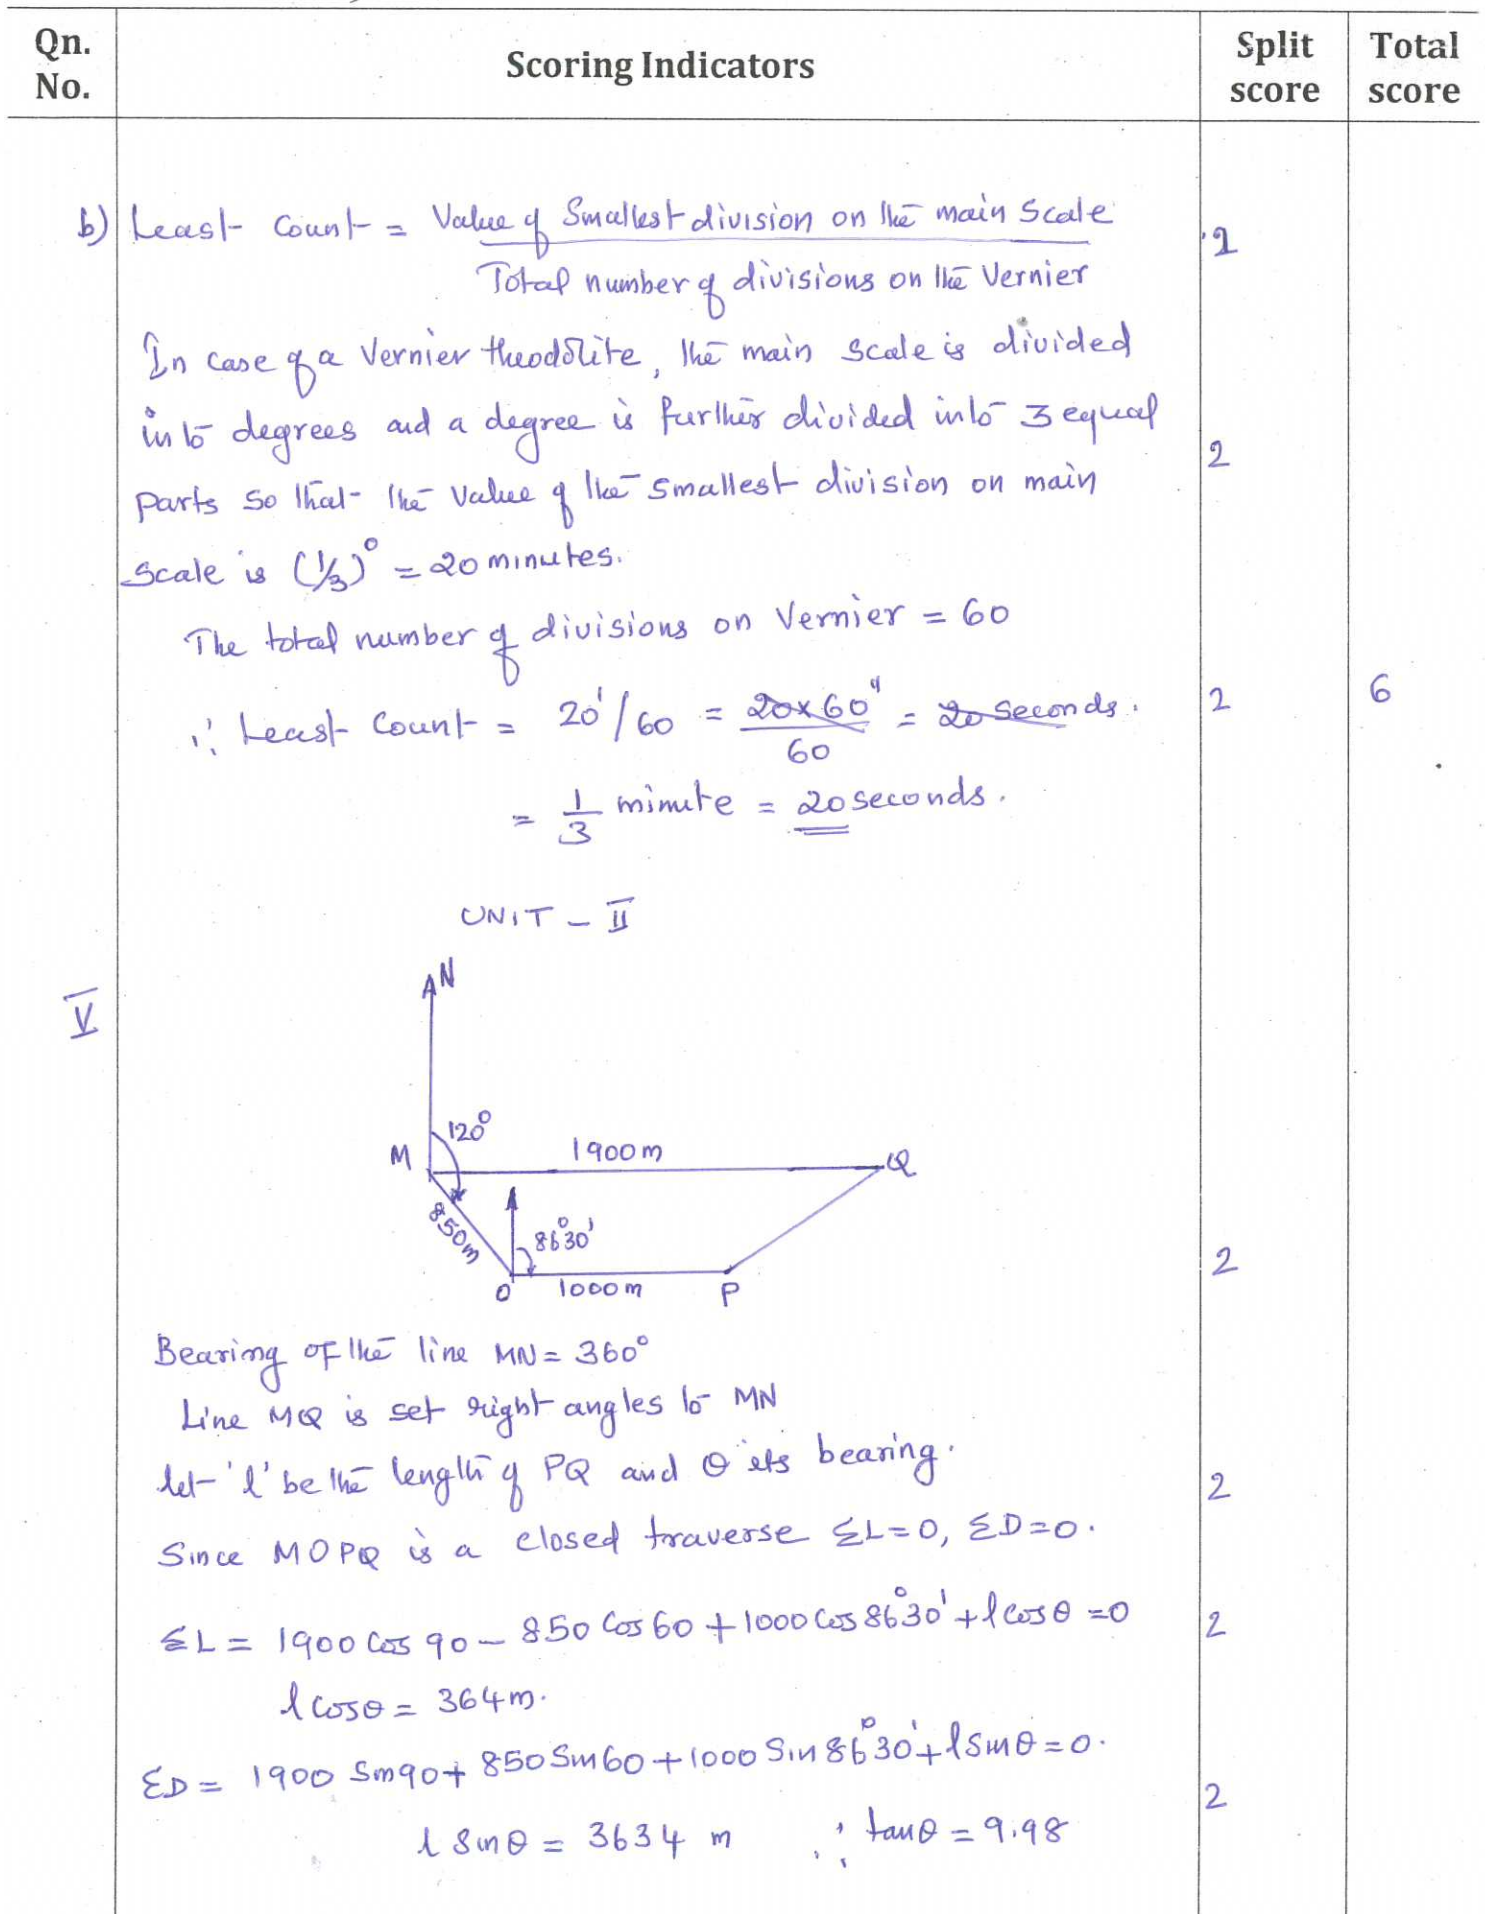 Qn. No.
Scoring Indicators
Split score
Total score
b) Least Count = Value of Smallest division on the main Scale
Total number of divisions on the Vernier
1
In case of a Vernier theodolite, the main scale is divided
into degrees and a degree is further divided into 3 equal
2
Parts so that the value of the smallest division on main
scale is (1/3)° = 20 minutes.
The total number of divisions on Vernier = 60
∴ Least Count = 20'/60 = 20×60"/60 = 20 seconds.
2
6
= 1/3 minute = 20 seconds.
UNIT - II
V
N
120°
M
1900m
Q
850m
86°30'
O
1000m
P
2
Bearing OF the line MN = 360°
Line MQ is set right angles to MN
let 'l' be the length of PQ and θ its bearing.
2
Since MOPQ is a closed traverse ΣL=0, ΣD=0.
ΣL = 1900 Cos 90 - 850 Cos 60 + 1000 Cos 86°30' + l Cos θ = 0
2
l Cos θ = 364 m.
ΣD = 1900 Sin 90 + 850 Sin 60 + 1000 Sin 86°30' + l Sin θ = 0.
2
l Sin θ = 3634 m ∴ tan θ = 9.98